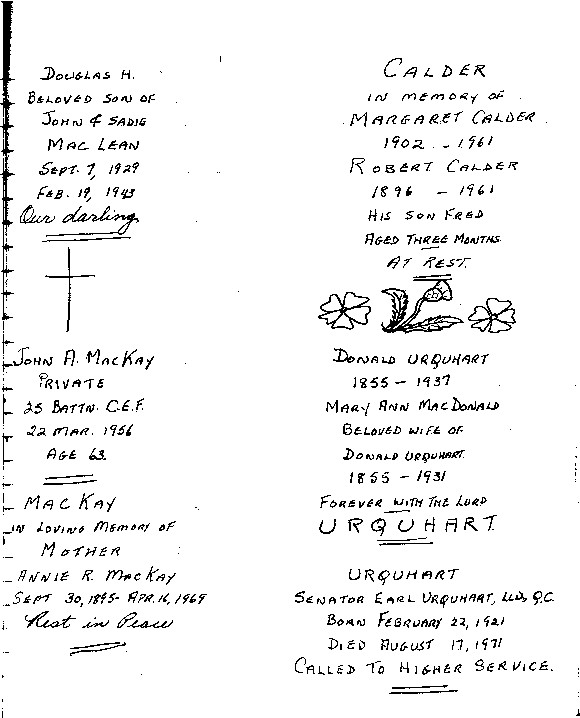 DOUGLAS H.
BELOVED SON OF
JOHN & SADIE
MAC LEAN
SEPT. 7, 1929
FEB. 19, 1943
Our darling
JOHN A. MACKAY
PRIVATE
25 BATTN. C.E.F.
22 MAR. 1956
AGE 63.
MACKAY
IN LOVING MEMORY OF
MOTHER
ANNIE R. MACKAY
SEPT 30, 1895- APR. 16, 1969
Rest in Peace
CALDER
IN MEMORY OF
MARGARET CALDER
1902 - 1961
ROBERT CALDER
1896 - 1961
HIS SON FRED
AGED THREE MONTHS
AT REST.
DONALD URQUHART
1855 - 1937
MARY ANN MACDONALD
BELOVED WIFE OF
DONALD URQUHART.
1855 - 1931
FOREVER WITH THE LORD
URQUHART
URQUHART
SENATOR EARL URQUHART, LLD, Q.C.
BORN FEBRUARY 22, 1921
DIED AUGUST 17, 1971
CALLED TO HIGHER SERVICE.